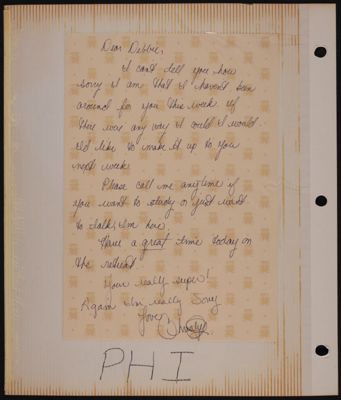 Dear Debbie,
I can't tell you how
sorry I am that I haven't been
around for you this week. If
there was any way I could I would.
I'd like to make it up to you
next week.
Please call me anytime if
you want to study or just want
to talk, I'm here.
Have a great time today on
the retreat.
Your really super!
Again I'm really sorry
Love,
PHI